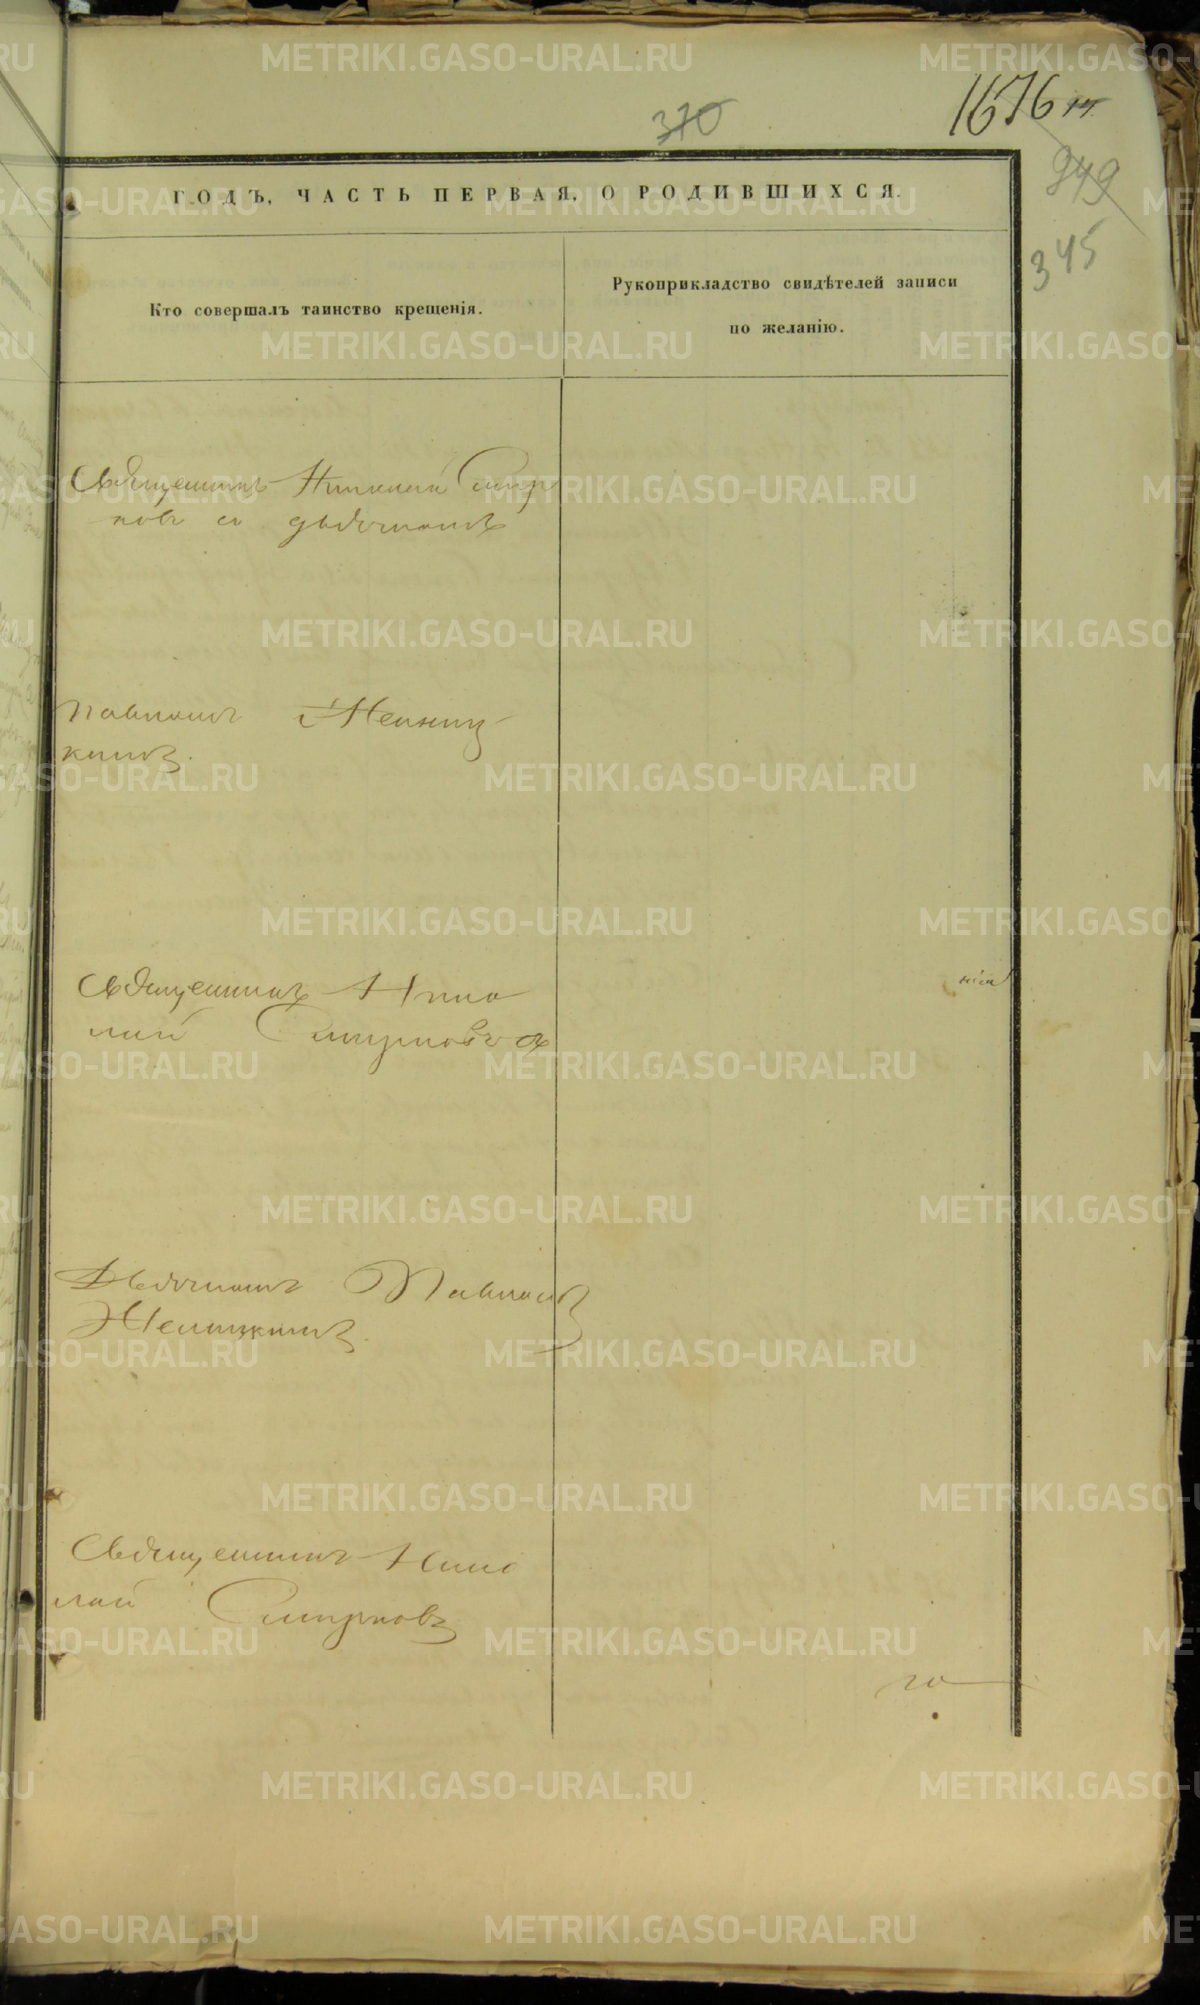 1676
370
949
345
ГОДЪ, ЧАСТЬ ПЕРВАЯ, О РОДИВШИХСЯ.
Кто совершалъ таинство крещенія.
Рукоприкладство свидѣтелей записи
по желанію.
Священникъ Николай Смир
новъ съ дьячкомъ
Павломъ
Священникъ Нико
лай Смирновъ
Дьячокъ Павелъ
Священникъ Нико
лай Смирновъ
METRIKI.GASO-URAL.RU